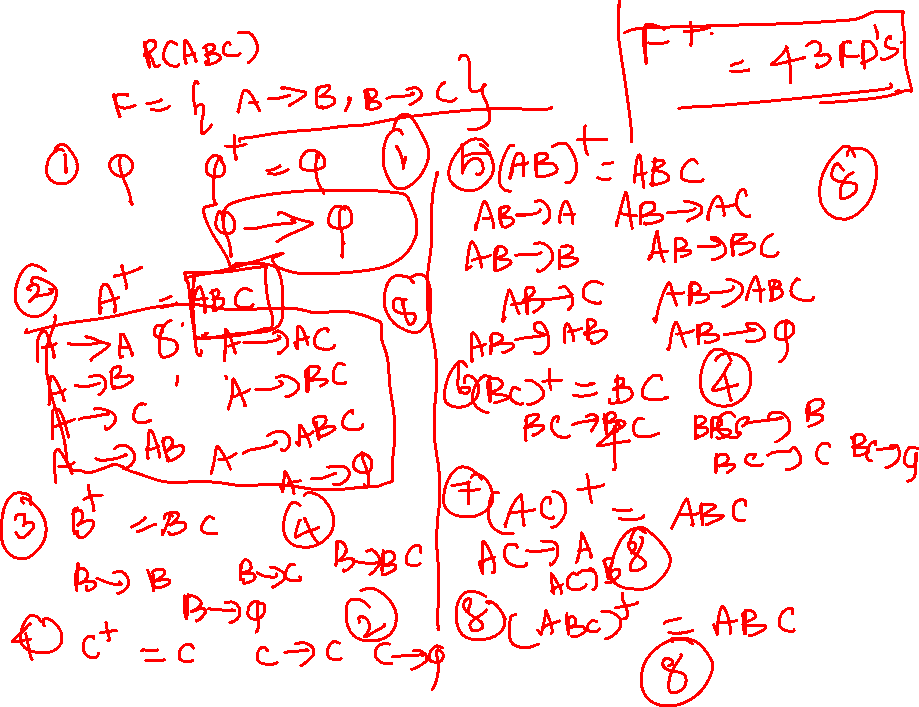 R(ABC)
F = { A → B, B → C }
F+ = 43 FD'S
① φ φ+ = φ ①
φ → φ
② A+ = ABC ⑧
A → A 8 A → AC
A → B A → BC
A → C A → ABC
A → AB A → φ
③ B+ = BC ④
B → B B → C B → BC
B → φ
④ C+ = C C → C C → φ ②
⑤ (AB)+ = ABC ⑧
AB → A AB → AC
AB → B AB → BC
AB → C AB → ABC
AB → AB AB → φ
⑥ (BC)+ = BC ④
BC → BC BC → B
BC → C BC → φ
⑦ (AC)+ = ABC
AC → A ⑧
AC → B
⑧ (ABC)+ = ABC
⑧